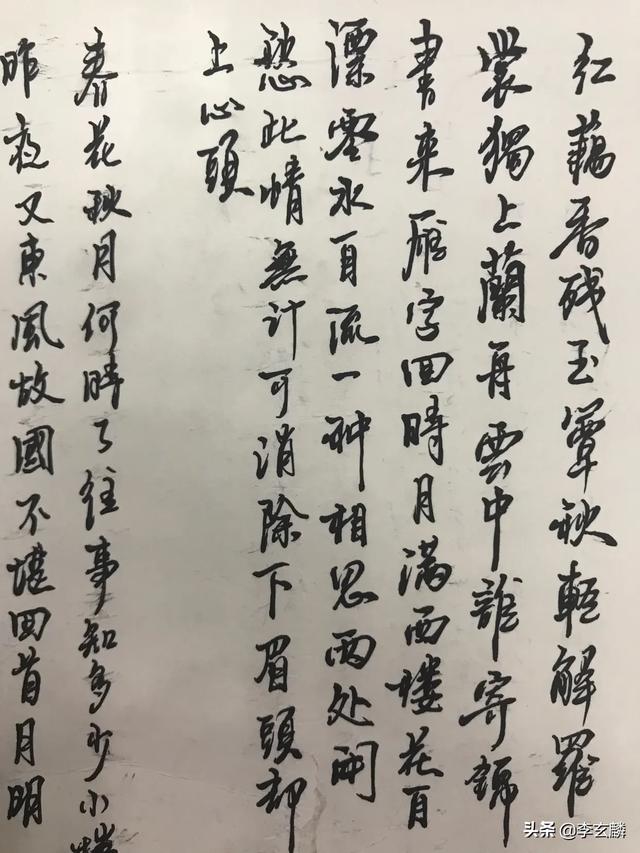 红藕香残玉簟秋轻解羅
裳獨上蘭舟雲中誰寄錦
書来雁字回時月满西楼花自
漂零水自流一种相思两处閒
愁此情無计可消除下眉頭却
上心頭
春花秋月何時了往事知多少小楼
昨夜又東風故國不堪回首月明
头条@李玄麟